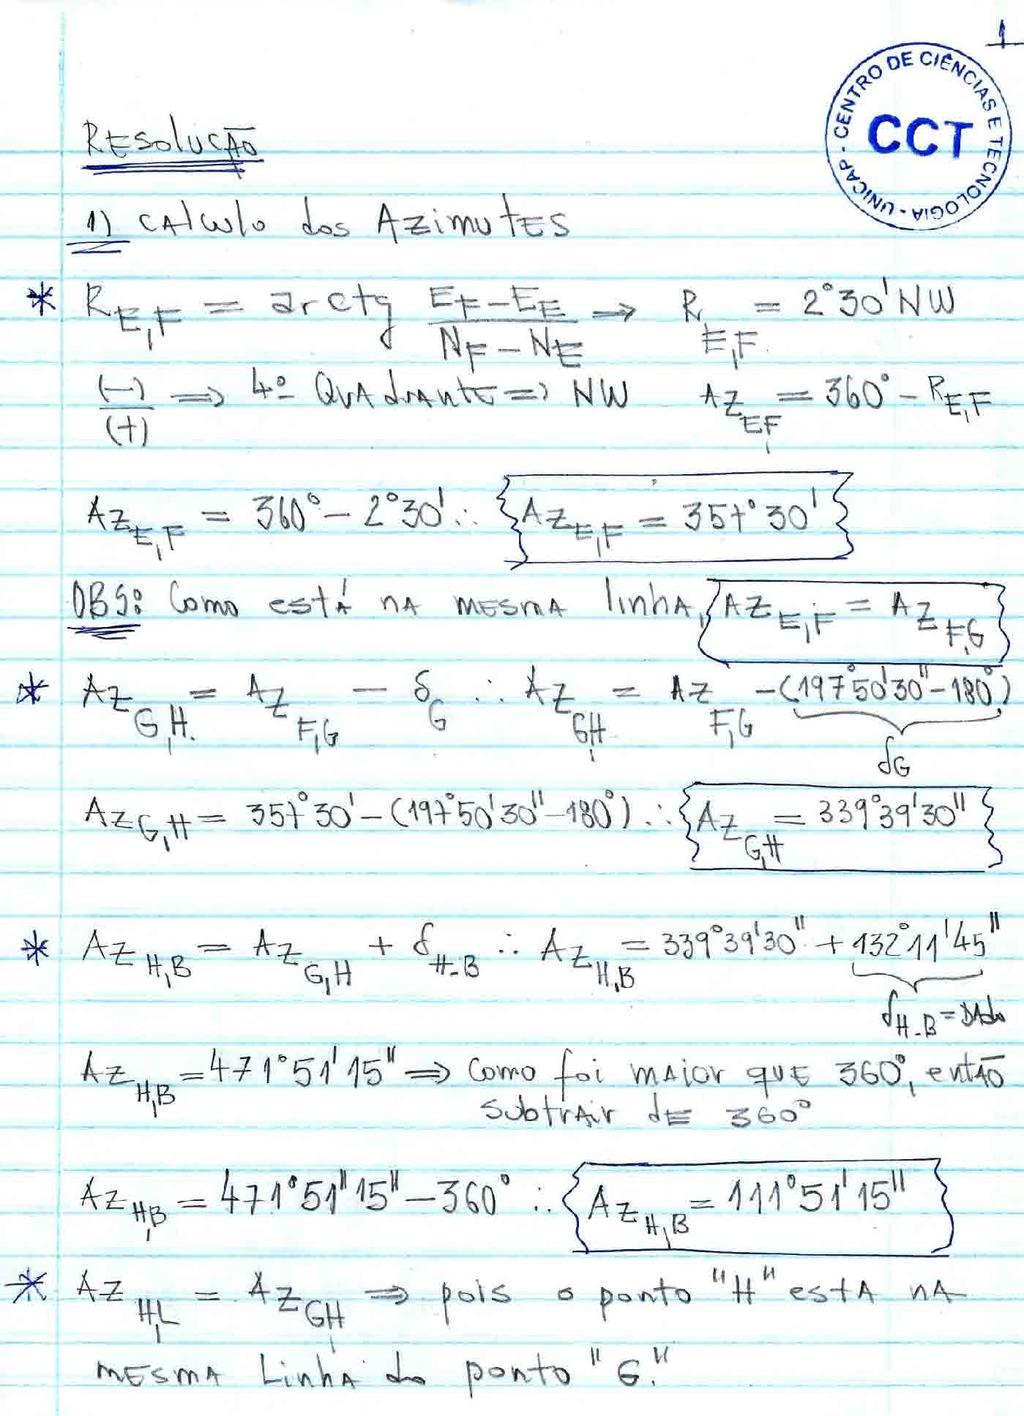 1
CENTRO DE CIÊNCIAS E TECNOLOGIA - UNICAP -
CCT
RESOLUÇÃO
1) CALCULO dos AZIMUTES
* R_E,F = arctg (E_F - E_E)/(N_F - N_E) → R_E,F = 2°30' NW
(-)/(+) ⇒ 4º QUADRANTE ⇒ NW AZ_EF = 360° - R_E,F
AZ_E,F = 360° - 2°30' ∴ AZ_E,F = 357°30'
OBS: Como está NA MESMA linha, AZ_E,F = AZ_F,G
* AZ_G,H = AZ_F,G - δ_G ∴ AZ_GH = AZ_F,G - (197°50'30" - 180°)
δ_G
AZ_G,H = 357°30' - (197°50'30" - 180°) ∴ AZ_G,H = 339°39'30"
* AZ_H,B = AZ_G,H + δ_H-B ∴ AZ_H,B = 339°39'30" + 132°11'45"
δ_H-B = DAdo
AZ_H,B = 471°51'15" ⇒ Como foi MAIOR QUE 360°, então
subtrAir dE 360°
AZ_H,B = 471°51"15" - 360° ∴ AZ_H,B = 111°51'15"
* AZ_H,L = AZ_GH ⇒ pois o ponto "H" estA NA
MESMA LinhA do ponto "G".